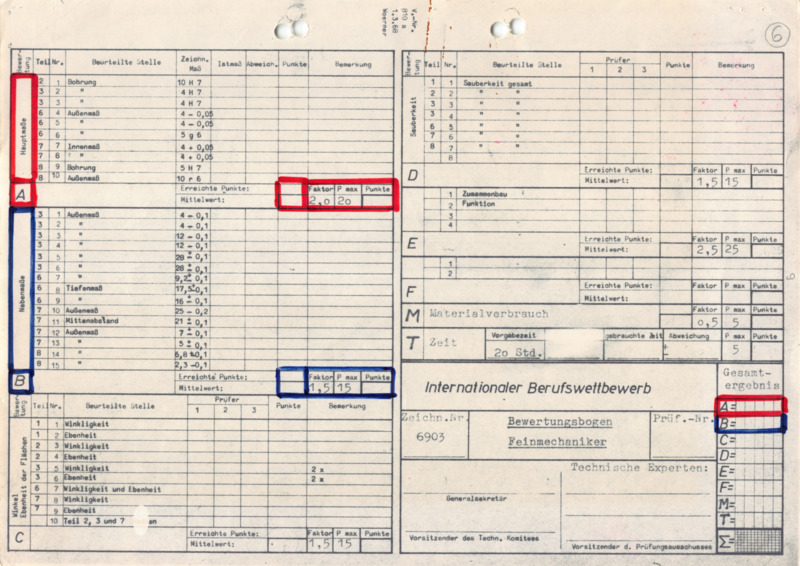 V.-Nr.
810 a
1.3.68
Woerner
6
Bewertung
Teil Nr. Beurteilte Stelle Zeichn. Maß Istmaß Abweich. Punkte Bemerkung
Hauptmaße
2 1 Bohrung 10 H 7
3 2 " 4 H 7
3 3 " 4 H 7
6 4 Außenmaß 4 - 0,05
6 5 " 4 - 0,05
6 6 " 5 g 6
7 7 Innenmaß 4 + 0,05
7 8 " 4 + 0,05
8 9 Bohrung 5 H 7
8 10 Außenmaß 10 r 6
A
Erreichte Punkte: Faktor P max Punkte
Mittelwert: 2,0 20
Nebenmaße
3 1 Außenmaß 4 - 0,1
3 2 " 4 - 0,1
3 3 " 12 - 0,1
3 4 " 12 - 0,1
3 5 " 28 ± 0,1
3 6 " 28 ± 0,1
6 7 " 9,2 ± 0,1
6 8 Tiefenmaß 17,5 ± 0,1
6 9 " 16 - 0,1
7 10 Außenmaß 25 - 0,2
7 11 Mittenabstand 21 ± 0,1
7 12 Außenmaß 7 ± 0,1
7 13 " 5 ± 0,1
8 14 " 6,8 ± 0,1
8 15 " 2,3 - 0,1
B
Erreichte Punkte: Faktor P max Punkte
Mittelwert: 1,5 15
Bewertung
Teil Nr. Beurteilte Stelle Prüfer 1 2 3 Punkte Bemerkung
Winkel
Ebenheit der Flächen
1 1 Winkligkeit
1 2 Ebenheit
2 3 Winkligkeit
2 4 Ebenheit
3 5 Winkligkeit 2 x
3 6 Ebenheit 2 x
6 7 Winkligkeit und Ebenheit
7 8 Winkligkeit
7 9 Ebenheit
10 Teil 2, 3 und 7
C
Erreichte Punkte: Faktor P max Punkte
Mittelwert: 1,5 15
Bewertung
Teil Nr. Beurteilte Stelle Prüfer 1 2 3 Punkte Bemerkung
Sauberkeit
1 1 Sauberkeit gesamt
2 2 " "
3 3 " "
4 4 " "
6 5 " "
7 6 " "
8 7 " "
8
D
Erreichte Punkte: Faktor P max Punkte
Mittelwert: 1,5 15
1 Zusammenbau
2 Funktion
3
4
E
Erreichte Punkte: Faktor P max Punkte
Mittelwert: 2,5 25
1
2
F
Erreichte Punkte: Faktor P max Punkte
Mittelwert:
M Materialverbrauch Faktor P max Punkte
0,5 5
T Zeit Vorgabezeit gebrauchte Zeit Abweichung P max Punkte
20 Std. ± 5
Internationaler Berufswettbewerb
Gesamtergebnis
Zeichn.Nr.
6903
Bewertungsbogen
Feinmechaniker
Prüf.-Nr.
Technische Experten:
Generalsekretär
Vorsitzender des Techn. Komitees
Vorsitzender d. Prüfungsausschusses
A=
B=
C=
D=
E=
F=
M=
T=
Σ=